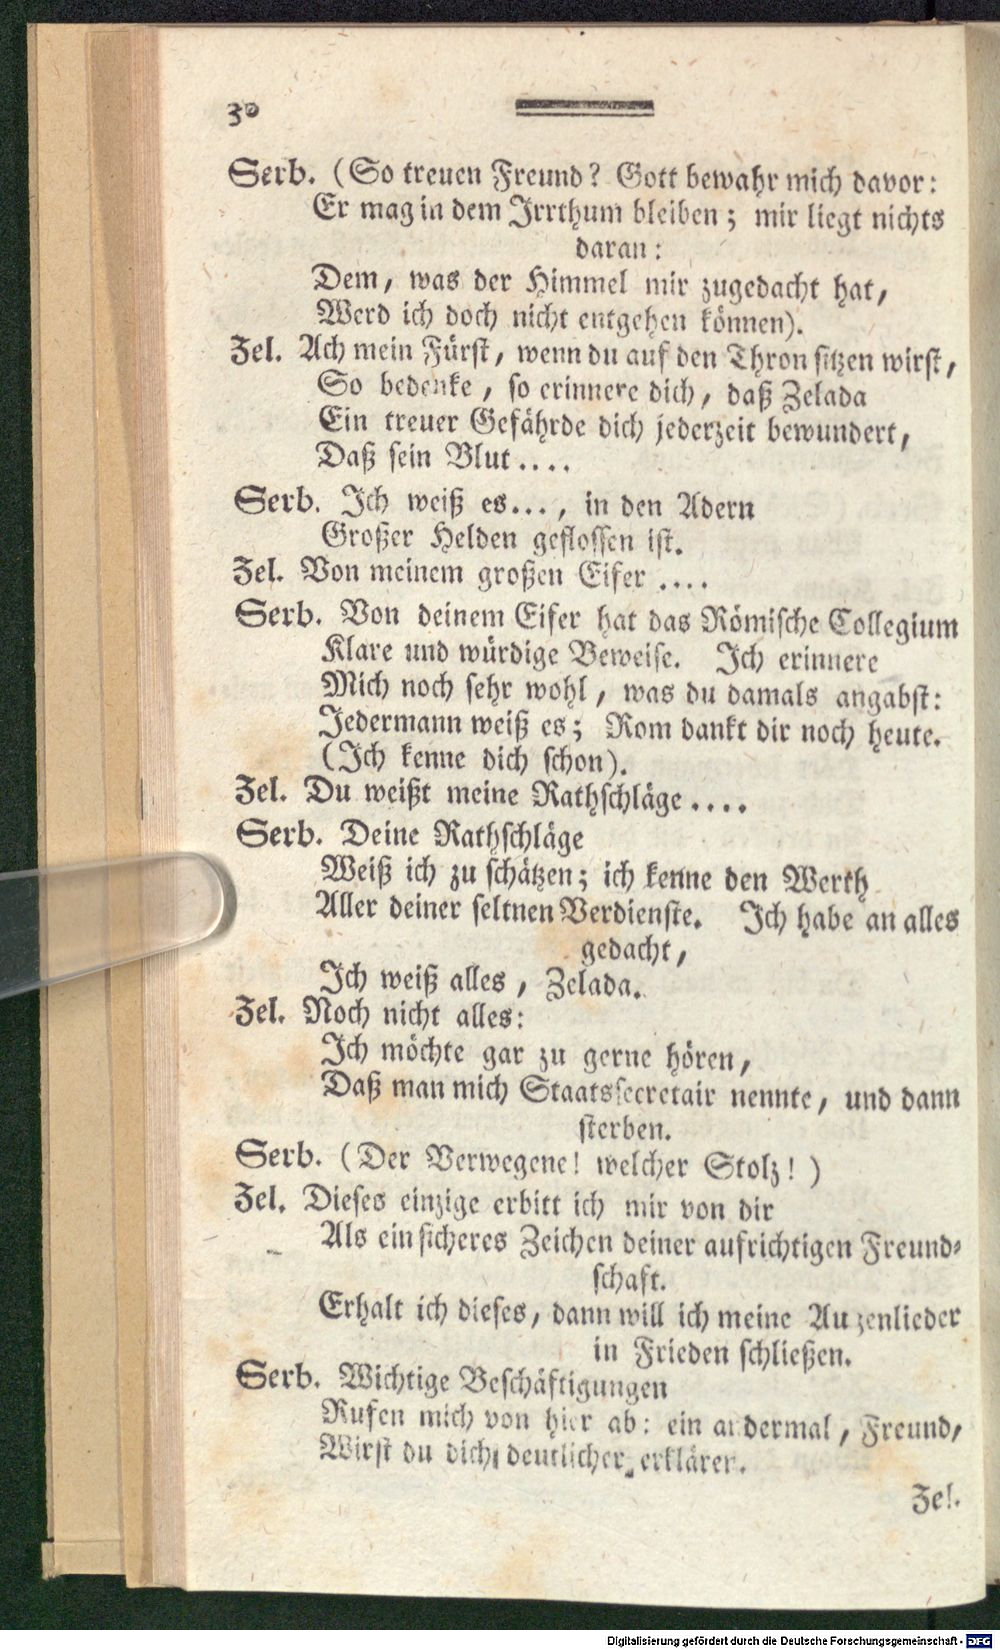 30
Serb. (So treuen Freund? Gott bewahr mich davor:
Er mag in dem Irrthum bleiben; mir liegt nichts
daran:
Dem, was der Himmel mir zugedacht hat,
Werd ich doch nicht entgehen können).
Zel. Ach mein Fürst, wenn du auf den Thron sitzen wirst,
So bedenke, so erinnere dich, daß Zelada
Ein treuer Gefährde dich jederzeit bewundert,
Daß sein Blut....
Serb. Ich weiß es..., in den Adern
Großer Helden geflossen ist.
Zel. Von meinem großen Eifer ....
Serb. Von deinem Eifer hat das Römische Collegium
Klare und würdige Beweise. Ich erinnere
Mich noch sehr wohl, was du damals angabst:
Jedermann weiß es; Rom dankt dir noch heute.
(Ich kenne dich schon).
Zel. Du weißt meine Rathschläge....
Serb. Deine Rathschläge
Weiß ich zu schätzen; ich kenne den Werth
Aller deiner seltnen Verdienste. Ich habe an alles
gedacht,
Ich weiß alles, Zelada.
Zel. Noch nicht alles:
Ich möchte gar zu gerne hören,
Daß man mich Staatssecretair nennte, und dann
sterben.
Serb. (Der Verwegene! welcher Stolz!)
Zel. Dieses einzige erbitt ich mir von dir
Als ein sicheres Zeichen deiner aufrichtigen Freund-
schaft.
Erhalt ich dieses, dann will ich meine Augenlieder
in Frieden schließen.
Serb. Wichtige Beschäftigungen
Rufen mich von hier ab: ein andermal, Freund,
Wirst du dich deutlicher erklären.
Zel.
Digitalisierung gefördert durch die Deutsche Forschungsgemeinschaft - DFG